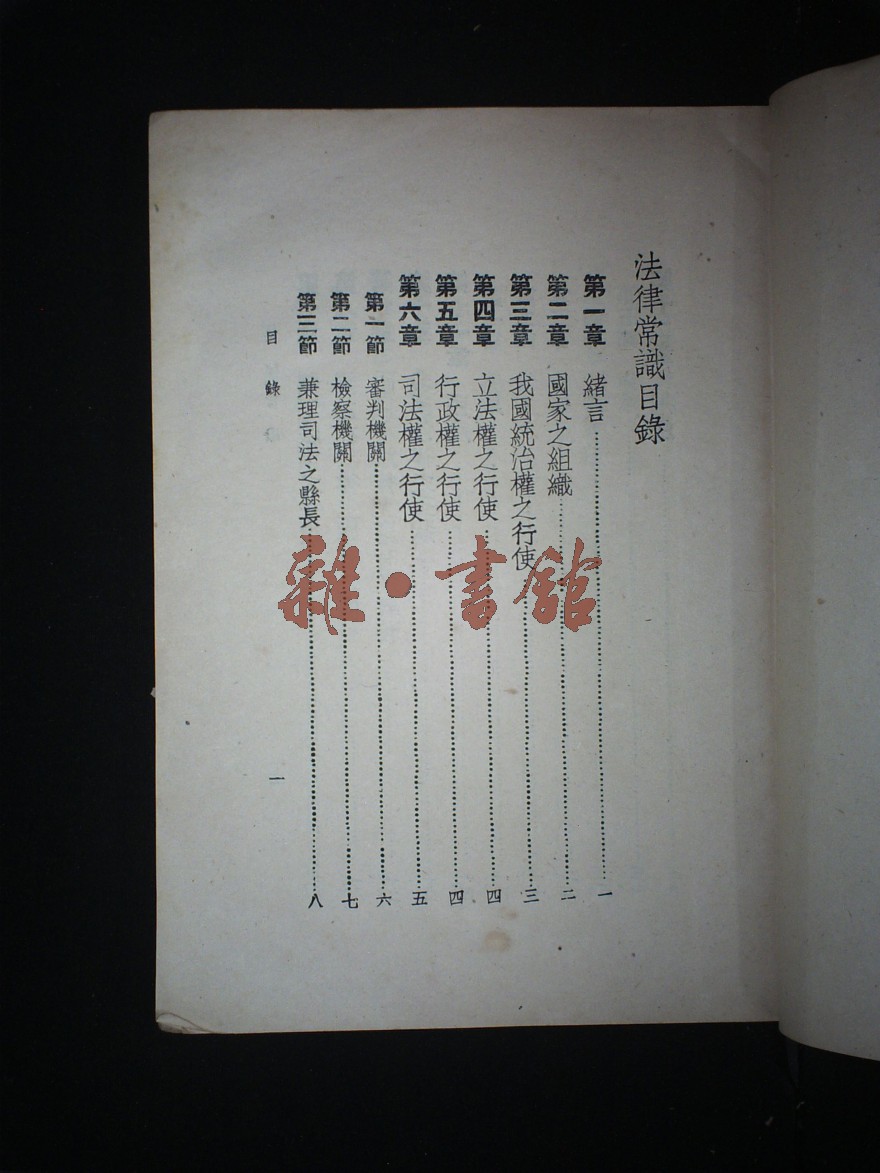 法律常識目錄
第一章 緒言……一
第二章 國家之組織……二
第三章 我國統治權之行使……三
第四章 立法權之行使……四
第五章 行政權之行使……四
第六章 司法權之行使……五
第一節 審判機關……六
第二節 檢察機關……七
第三節 兼理司法之縣長……八
目錄 一
雜·書館